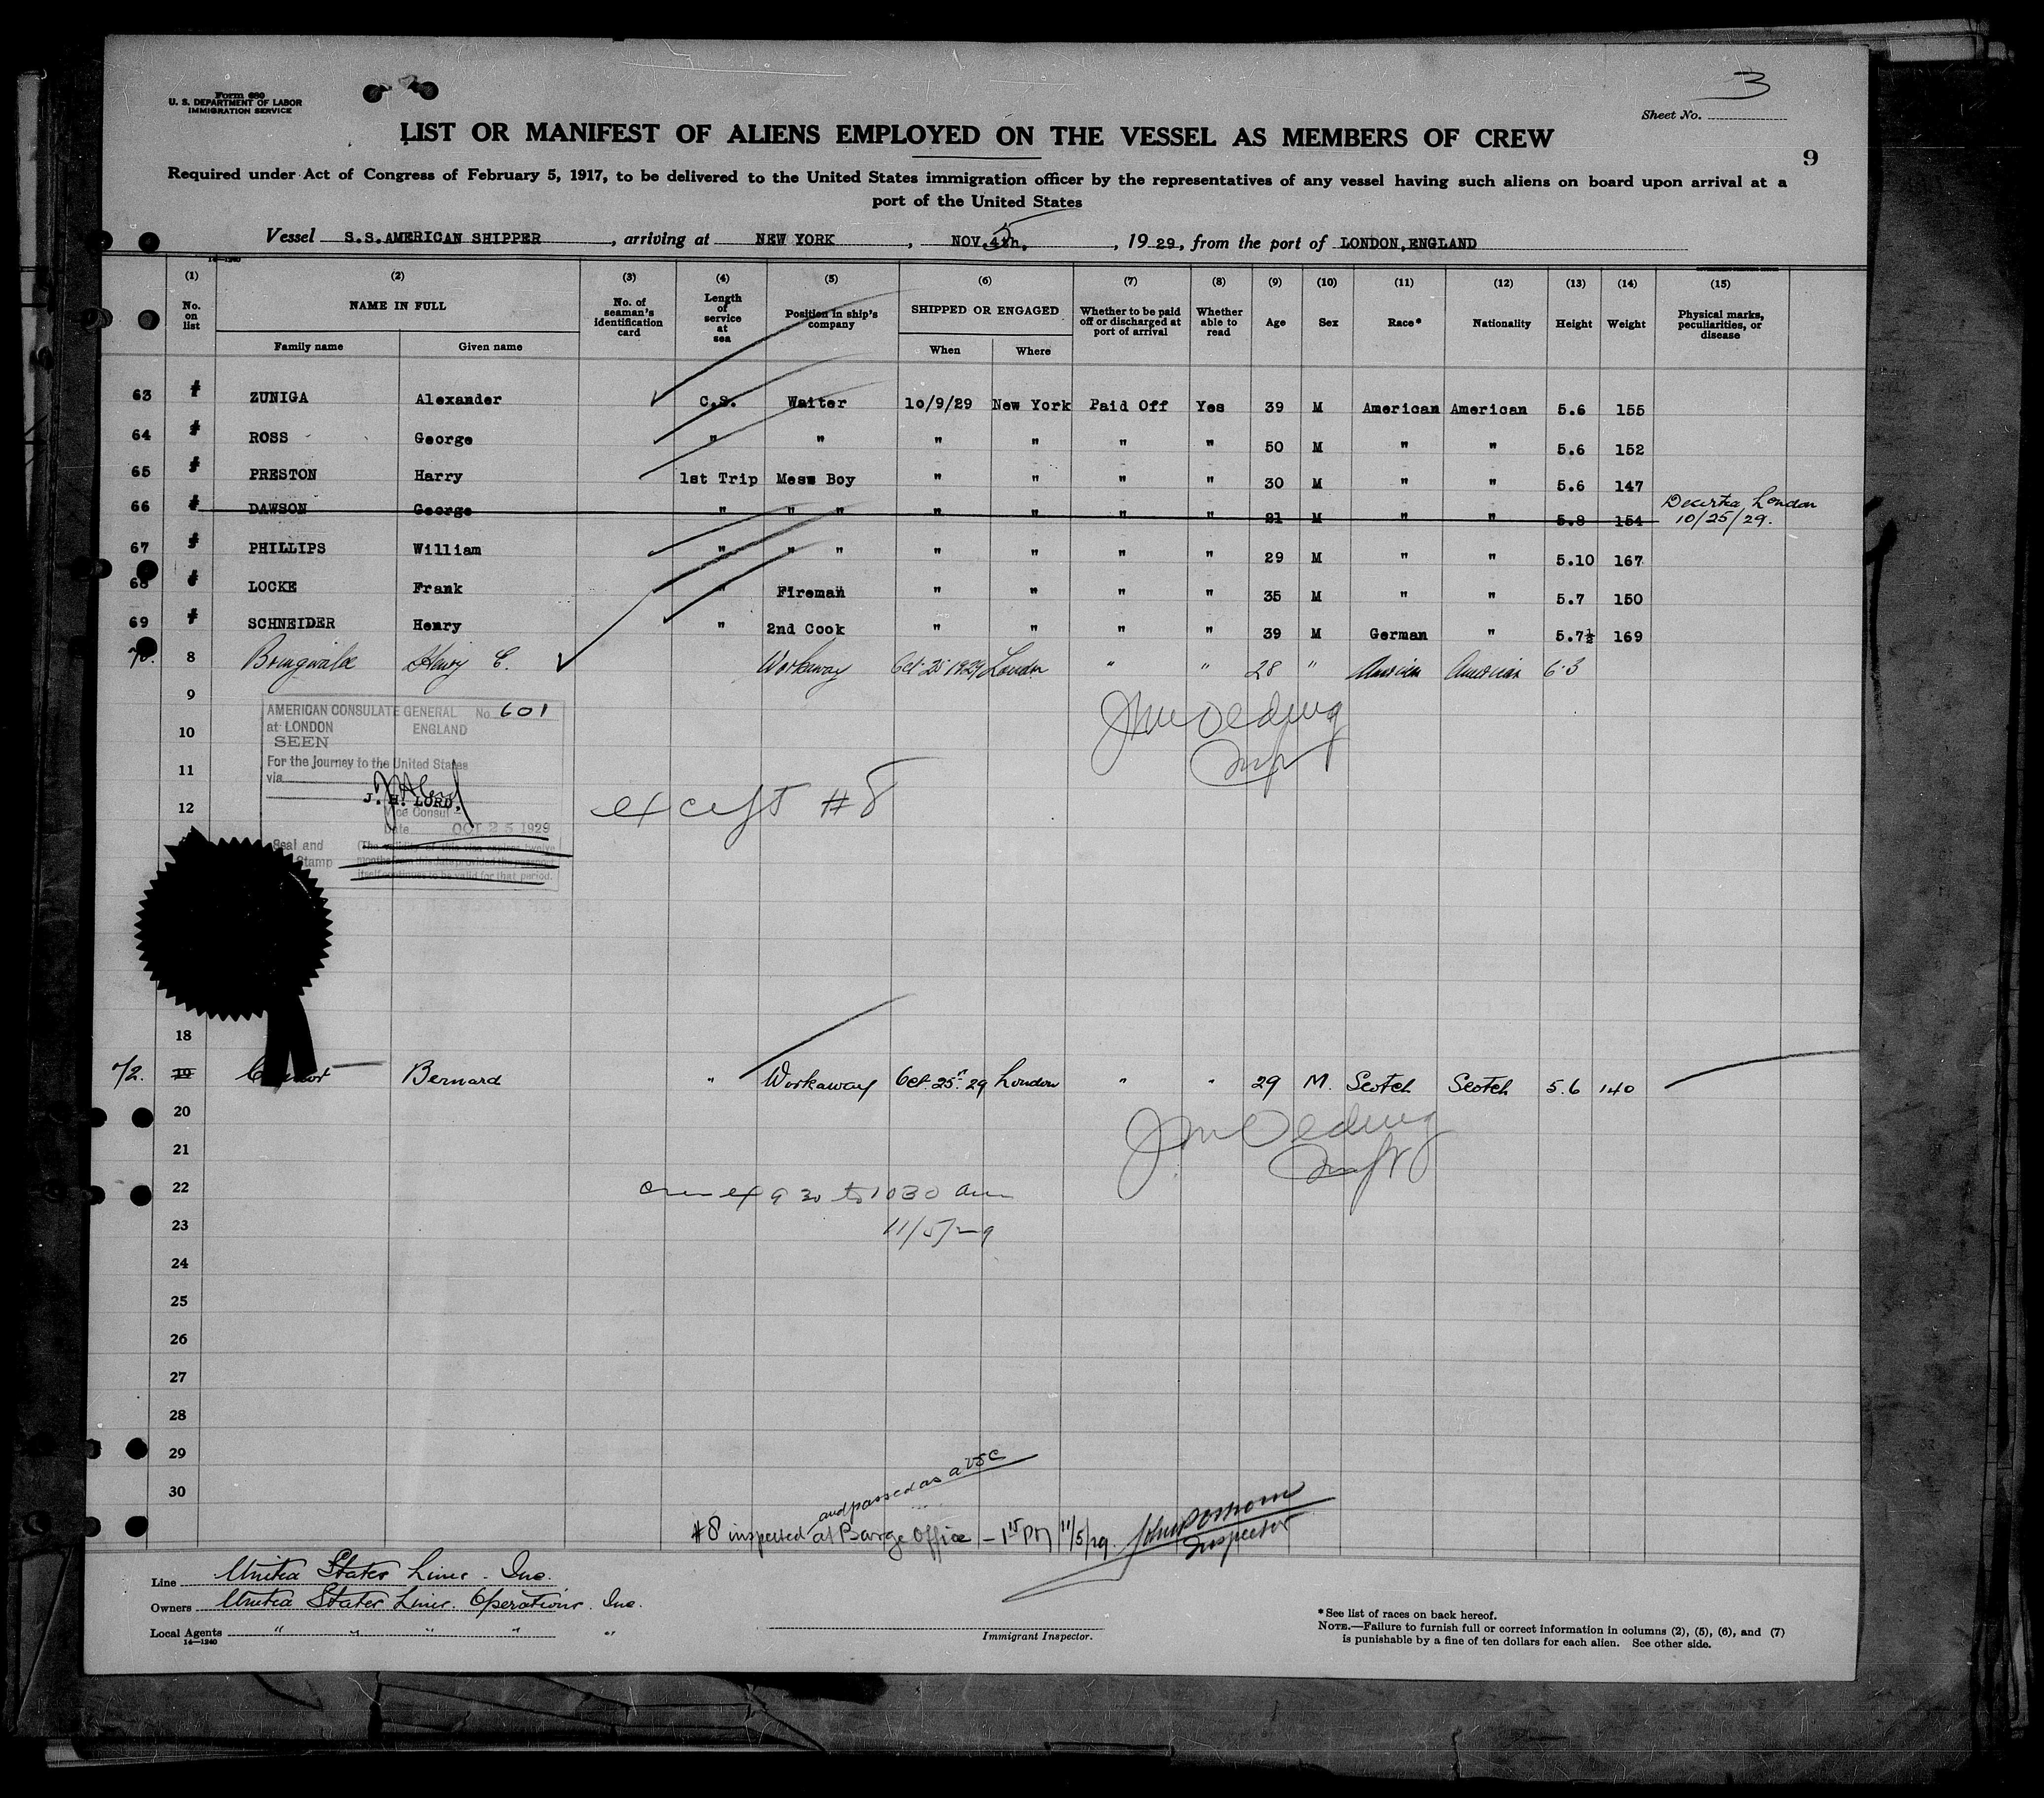 Form 680
U. S. DEPARTMENT OF LABOR
IMMIGRATION SERVICE
3
Sheet No.
LIST OR MANIFEST OF ALIENS EMPLOYED ON THE VESSEL AS MEMBERS OF CREW
9
Required under Act of Congress of February 5, 1917, to be delivered to the United States immigration officer by the representatives of any vessel having such aliens on board upon arrival at a
port of the United States
Vessel S.S.AMERICAN SHIPPER, arriving at NEW YORK, NOV.4th. 5, 1929, from the port of LONDON,ENGLAND
14—1240
(1) (2) (3) (4) (5) (6) (7) (8) (9) (10) (11) (12) (13) (14) (15)
No. on list NAME IN FULL Family name Given name No. of seaman's identification card Length of service at sea Position in ship's company SHIPPED OR ENGAGED When Where Whether to be paid off or discharged at port of arrival Whether able to read Age Sex Race* Nationality Height Weight Physical marks, peculiarities, or disease
63 1 ZUNIGA Alexander C.S. Waiter 10/9/29 New York Paid Off Yes 39 M American American 5.6 155
64 2 ROSS George " " " " " " 50 M " " 5.6 152
65 3 PRESTON Harry 1st Trip Mess Boy " " " " 30 M " " 5.6 147
66 4 DAWSON George " " " " " " " 21 M " " 5.8 154 London
10/25/29.
67 5 PHILLIPS William " " " " " " " 29 M " " 5.10 167
68 6 LOCKE Frank " Fireman " " " " 35 M " " 5.7 150
69 7 SCHNEIDER Henry " 2nd Cook " " " " 39 M German " 5.7½ 169
70. 8 Henry C. Workaway Oct 25 1929 London " " 28 " American American 6.3
9
AMERICAN CONSULATE GENERAL No. 601
at LONDON ENGLAND
SEEN
10
For the Journey to the United States
via
11
J. H. LORD,
Vice Consul
12 except #8
Date OCT 25 1929
Seal and Stamp
(The validity of this visa expires twelve
months from this date provided the passport
itself continues to be valid for that period.
JM Oeding
Insp
18
72. 19 Bernard " Workaway Oct. 25th. 29 London " " 29 M. Scotch Scotch 5.6 140
20
JM Oeding
Inspr
21
22 crew ex 9 30 to 10 30 am
23 11/5/29
24
25
26
27
28
29
30
and passed as a USC
#8 inspected at Barge Office — 1 15 PM 11/5/29. Inspector
Line United States Lines. Inc.
Owners United States Lines. Operations. Inc.
Local Agents " " " " "
14—1240
Immigrant Inspector.
*See list of races on back hereof.
NOTE.—Failure to furnish full or correct information in columns (2), (5), (6), and (7)
is punishable by a fine of ten dollars for each alien. See other side.